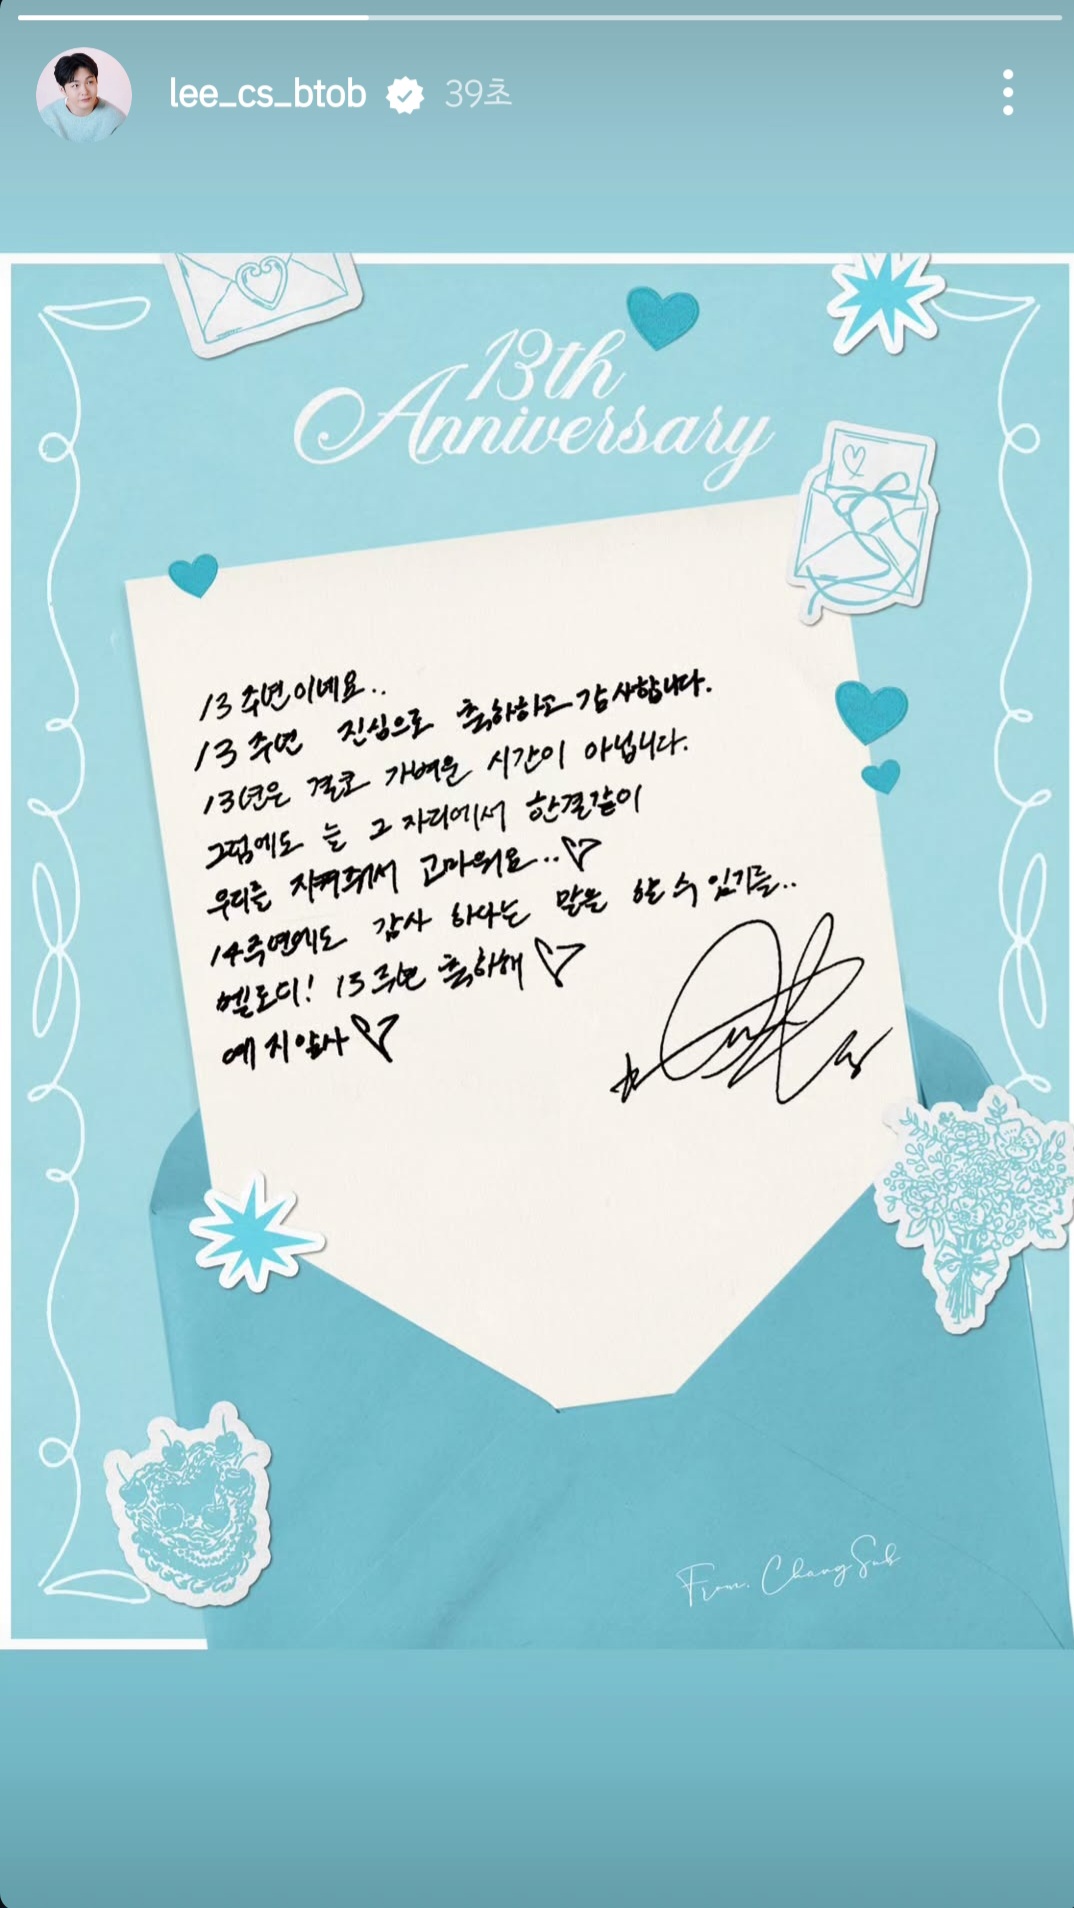 lee_cs_btob 39초
13th
Anniversary
13주년이네요..
13주년 진심으로 축하하고 감사합니다.
13년은 결코 가벼운 시간이 아닙니다.
그럼에도 늘 그 자리에서 한결같이
우리를 지켜줘서 고마워요..♡
14주년에도 감사 하다는 말을 할 수 있기를..
멜로디! 13주년 축하해♡
예지앞사♡
From. ChangSub